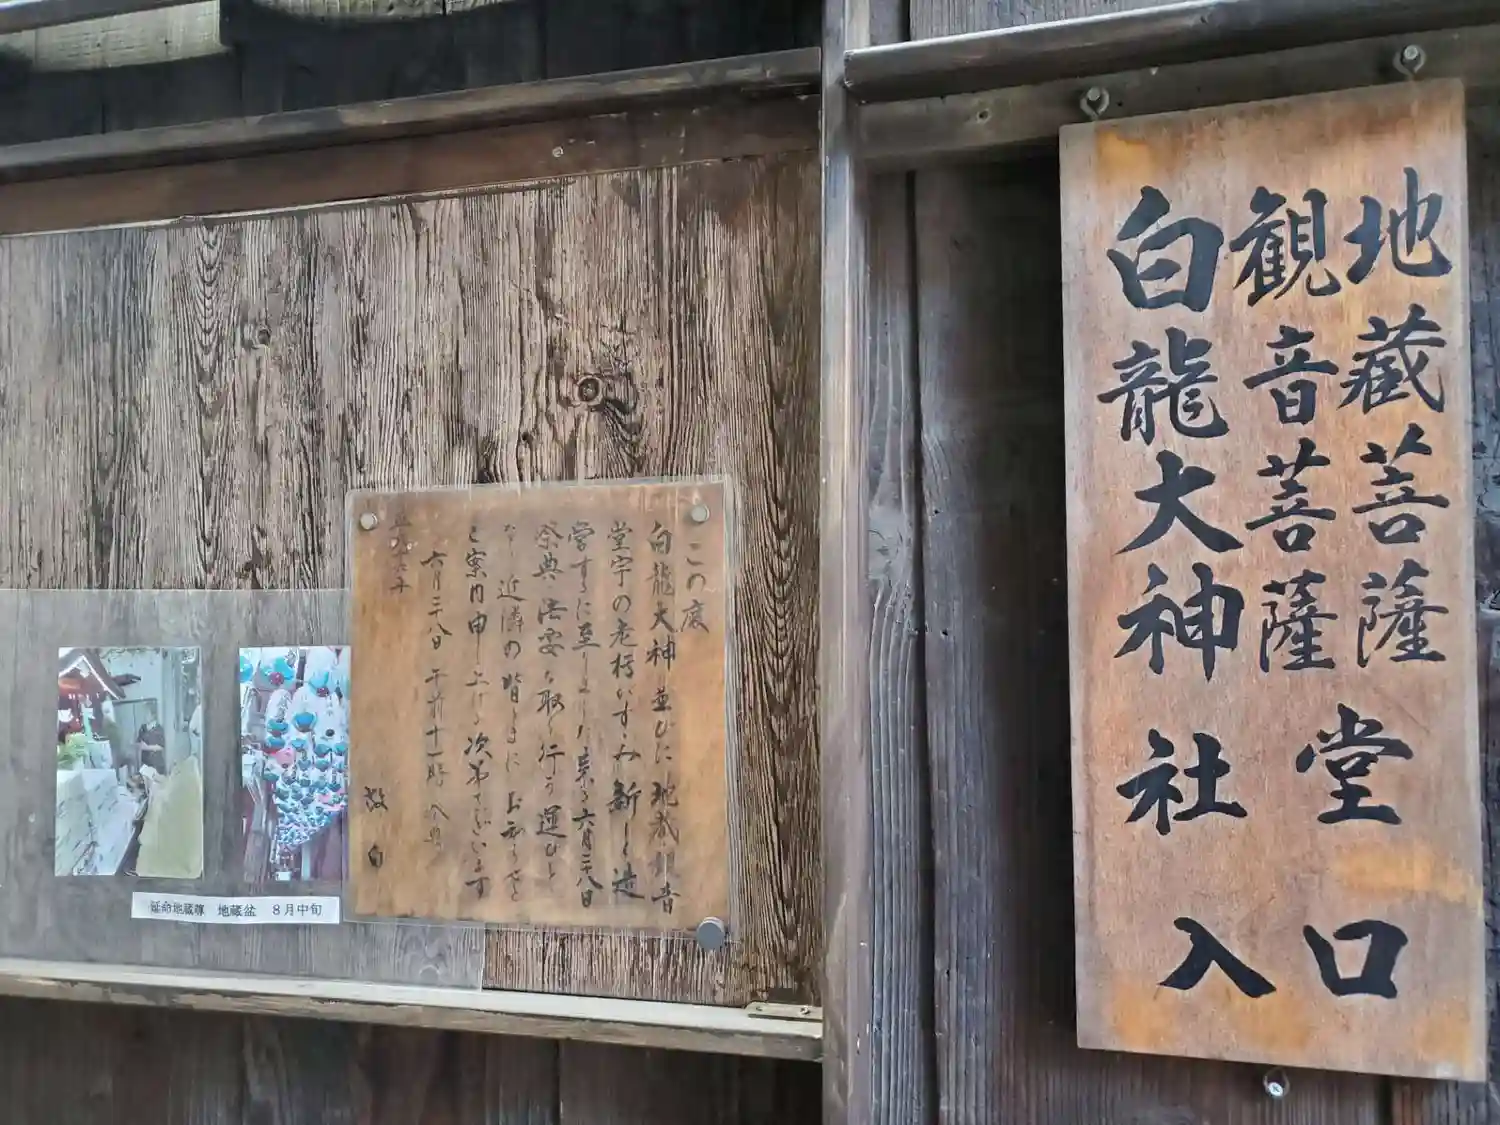 地蔵菩薩
観音菩薩
堂
白龍大神社
入口
この度
白龍大神並びに地蔵観音
堂宇の老朽がすゝみ新しく造
営するに至りました来る六月二十八日
祭典法要を取り行うの運びと
なり近隣の皆しまに
ご案内申し上げる次第でございます
六月二十八日 午前十一時
敬白
延命地蔵尊 地蔵盆 8月中旬